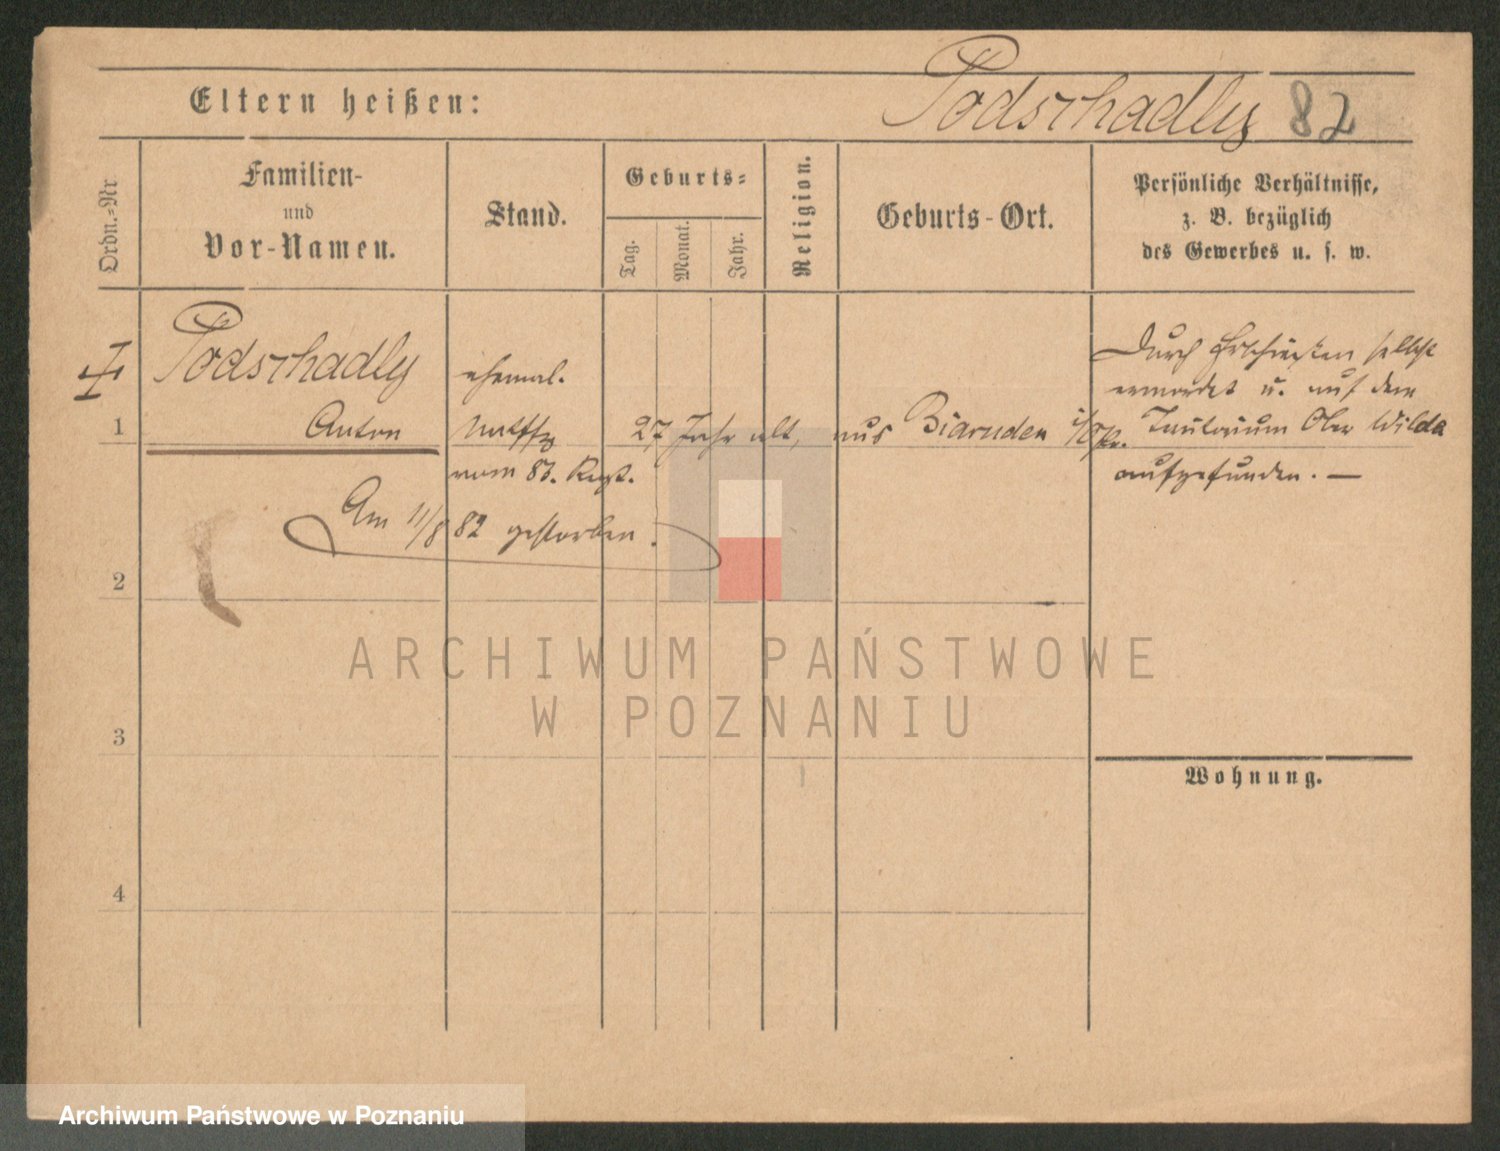 Eltern heißen:
Podschadly 82
Ordn.-Nr
Familien-
und
Vor-Namen.
Stand.
Geburts-
Tag.
Monat.
Jahr.
Religion.
Geburts-Ort.
Persönliche Verhältnisse,
z. B. bezüglich
des Gewerbes u. s. w.
Podschadly
Anton
ehemal.
vom 83. Regt.
27 Jahr alt, aus i/Opr.
Am 11/8 82 gestorben.
Durch Erschießen selbst
ermordet u. auf dem
Ober Wilda
aufgefunden. —
1
2
3
4
Wohnung.
ARCHIWUM PAŃSTWOWE
W POZNANIU
Archiwum Państwowe w Poznaniu